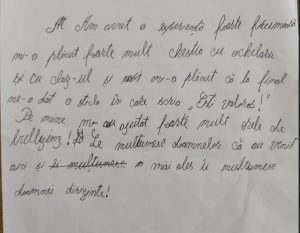 Am avut o experiență foarte frumoasă
mi-o plăcut foarte mult chestia cu ochelarii
și cu clay-ul și mi-o plăcut că la final
ne-o dat o sticlă în care scria „Ești valoros!"
Pe mine m-au ajutat foarte mult orele de
bullying! Le mulțumesc doamnelor că au venit
aici și îi mulțumesc mai ales îi mulțumesc
doamnei diriginte!